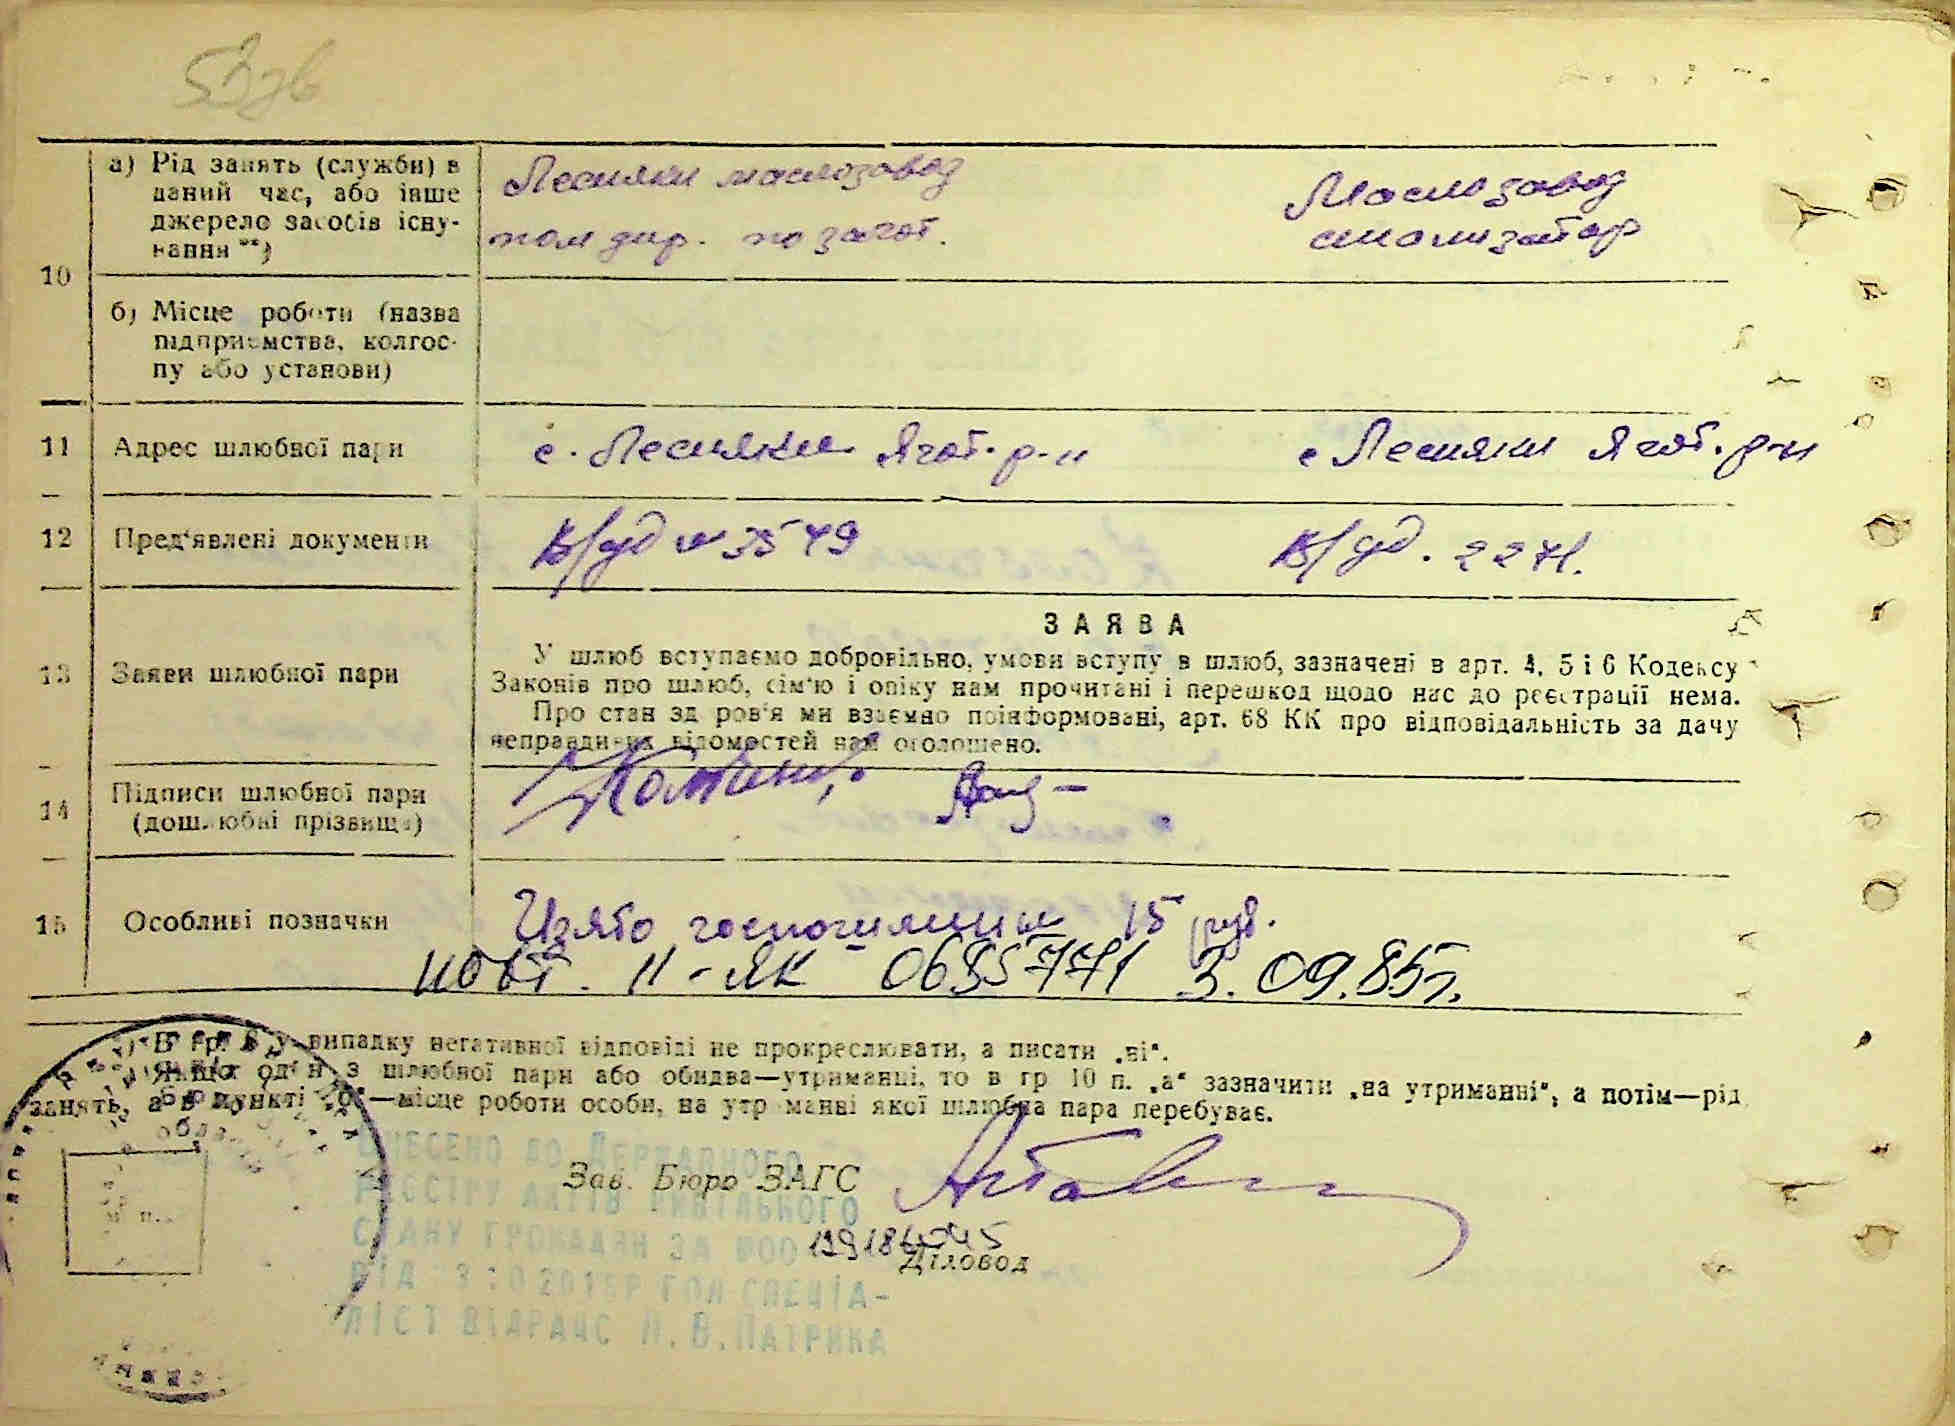 53зв
а) Рід занять (служби) в
даний час, або інше
джерело засобів існу-
вання **)
Лесняки маслозавод
пом дир. по загот.
Маслозавод
10
б) Місце роботи (назва
підприємства, колгос-
пу або установи)
11 Адрес шлюбної пари с. Лесняки Ягот. р-н с Лесняки Ягот. р-н
12 Пред'явлені документи В/уд № 3549 В/уд. 2271.
13 Заяви шлюбної пари
ЗАЯВА
У шлюб вступаємо добровільно, умови вступу в шлюб, зазначені в арт. 4, 5 і 6 Кодексу
Законів про шлюб, сім'ю і опіку нам прочитані і перешкод щодо нас до реєстрації нема.
Про стан здоров'я ми взаємно поінформовані, арт. 68 КК про відповідальність за дачу
неправдивих відомостей нам оголошено.
14 Підписи шлюбної пари
(дошлюбні прізвища)
15 Особливі позначки
Изято госпошлины 15 руб.
повт. II-ЯК 0685771 3.09.85г.
В гр. 8 у випадку негативної відповіді не прокреслювати, а писати „ні“.
Якщо один з шлюбної пари або обидва—утриманці, то в гр 10 п. „а“ зазначити „на утриманні“, а потім—рід
занять, а в пункті „б“—місце роботи особи, на утриманні якої шлюбна пара перебуває.
м п.
Зав. Бюро ЗАГС
Діловод
ВНЕСЕНО ДО ДЕРЖАВНОГО
РЕЄСТРУ АКТІВ ЦИВІЛЬНОГО
СТАНУ ГРОМАДЯН ЗА №00 119184045
ГОЛ СПЕЦІА-
ЛІСТ ВІДРАЦС Н.В.ПАТРИКА